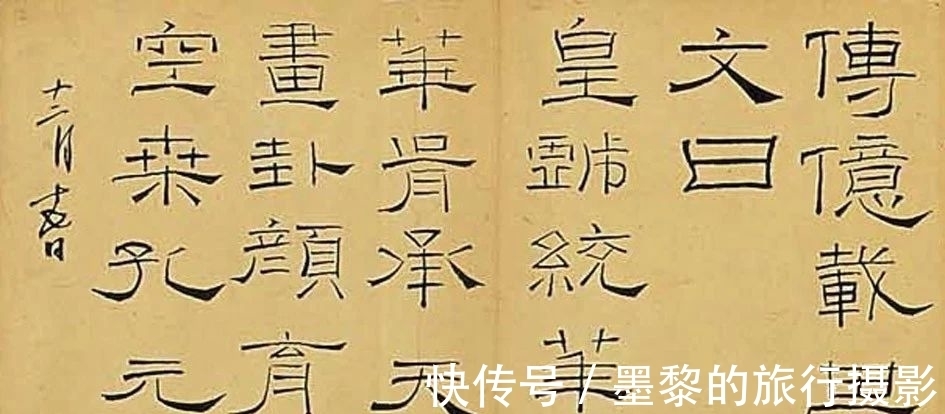 傳億載
文曰
皇統華
華胥承天
畫卦顏育
空桒孔元
十二月
快传号 / 墨黎的旅行摄影